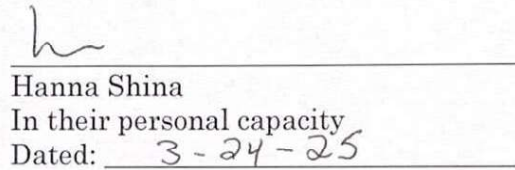 Hanna Shina
In their personal capacity
Dated: 3-24-25